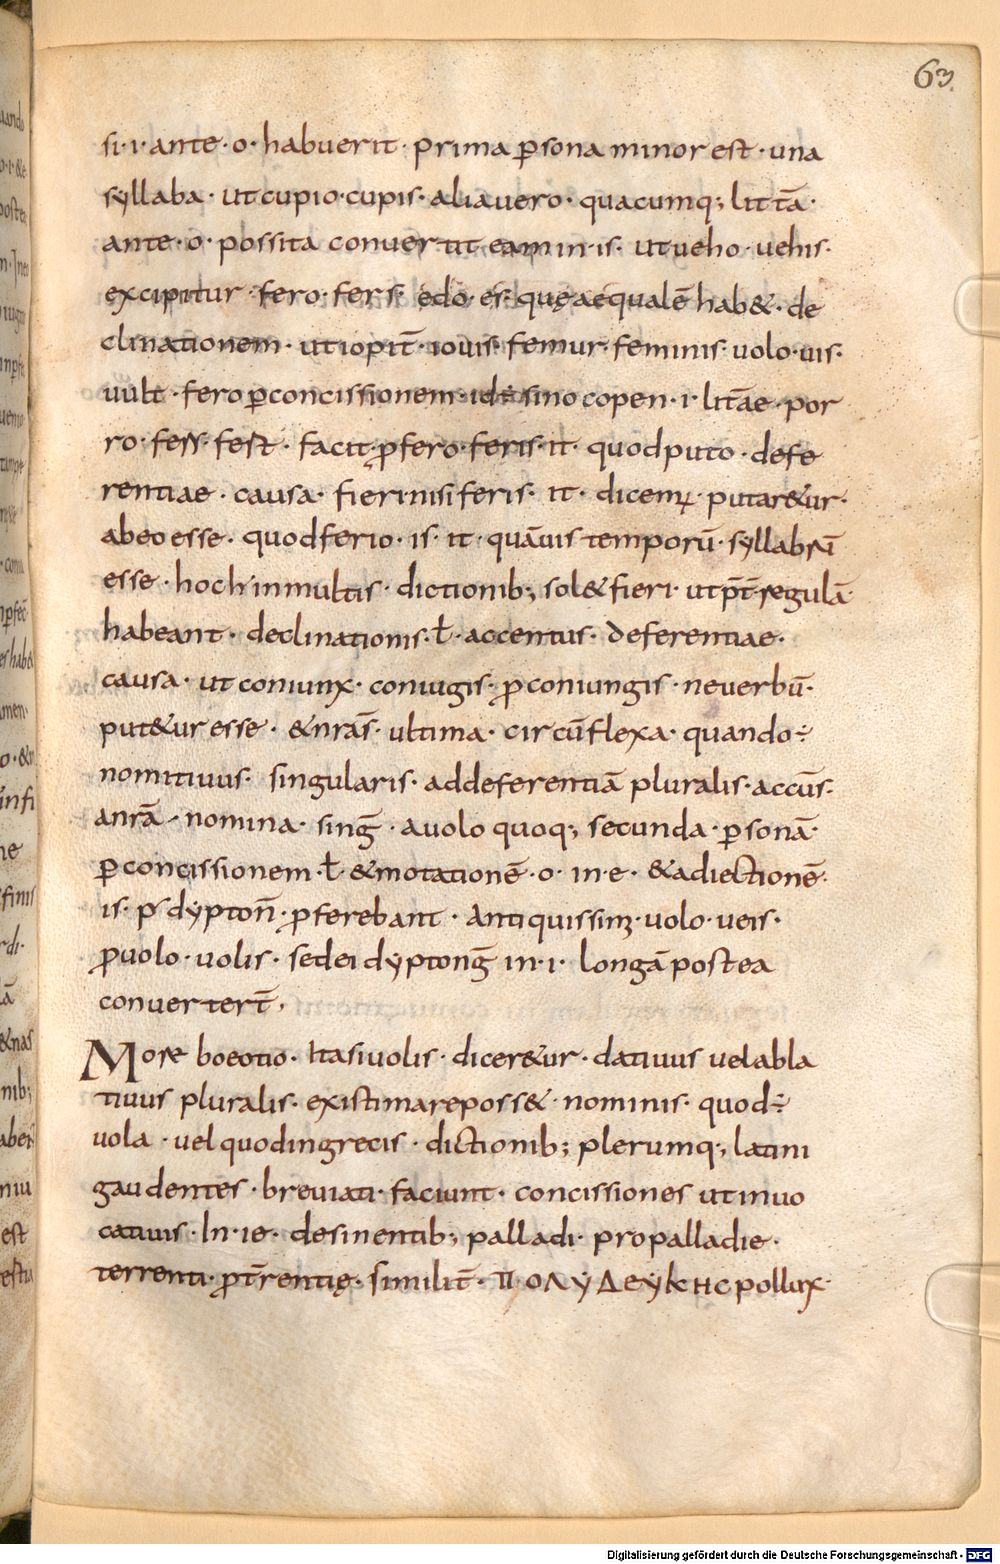 63
si·i·ante·o·habuerit·prima ꝑsona minor est·una
syllaba·ut cupio·cupis·alia uero·quacumq; littā·
ante·o·possita conuertit eam in·is·ut ueho·uehis·
excipitur·fero·fers·edo·es·quę aequalē hab&·de
clinationem·ut iopit̄·iouis·femur·feminis·uolo·uis·
uult·fero ꝑ concissionem·id÷ sincopen·i·litāe·por
ro·fess·fest·facit·ꝓ fero·feris·it·quod puto·defe
rentiae·causa·fieri nisi feris·it·dicem̄·putar&ur·
ab eo esse·quod ferio·is·it·quāuis temporū·syllabaꝝ̄
esse·hoc h̄ in multis·dictionib; sol& fieri·ut p̄t̄ regulā
habeant·declinationis·ł·accentus·deferentiae·
causa·ut coniunx·coniugis·ꝓ coniungis·ne uerbū·
put&ur esse·& nrās̄·ultima·circūflexa·quando÷
nomitiuus·singularis·ad deferentiā pluralis·accūs·
a nrā·nomina·sinḡ·a uolo quoq; secunda·ꝑsonā·
ꝑ concissionem·ł·& motationē·o·in·e·& adiectionē·
is·ꝑ dẏptoñ·ꝓferebant·antiquissim̄·uolo·ueis·
ꝓ uolo·uolis·sed ei dyptonḡ in·i·longā postea
conuertert̄,
More boeotio·Ita si uolis·dicer&ur·datiuus uel abla
tiuus pluralis·existimare poss&·nominis·quod÷
uola·uel quod in grecis·dictionib; plerumq; latini
gaudentes·breuiati·faciunt·concissiones ut in uo
catiuis·In·ie·desinentib; palladi·pro palladie·
terrenti·ꝓ t̄rentię·similit̄·π·ΟΛΥΔΕΥΚΗC pollux·
Digitalisierung gefördert durch die Deutsche Forschungsgemeinschaft - DFG